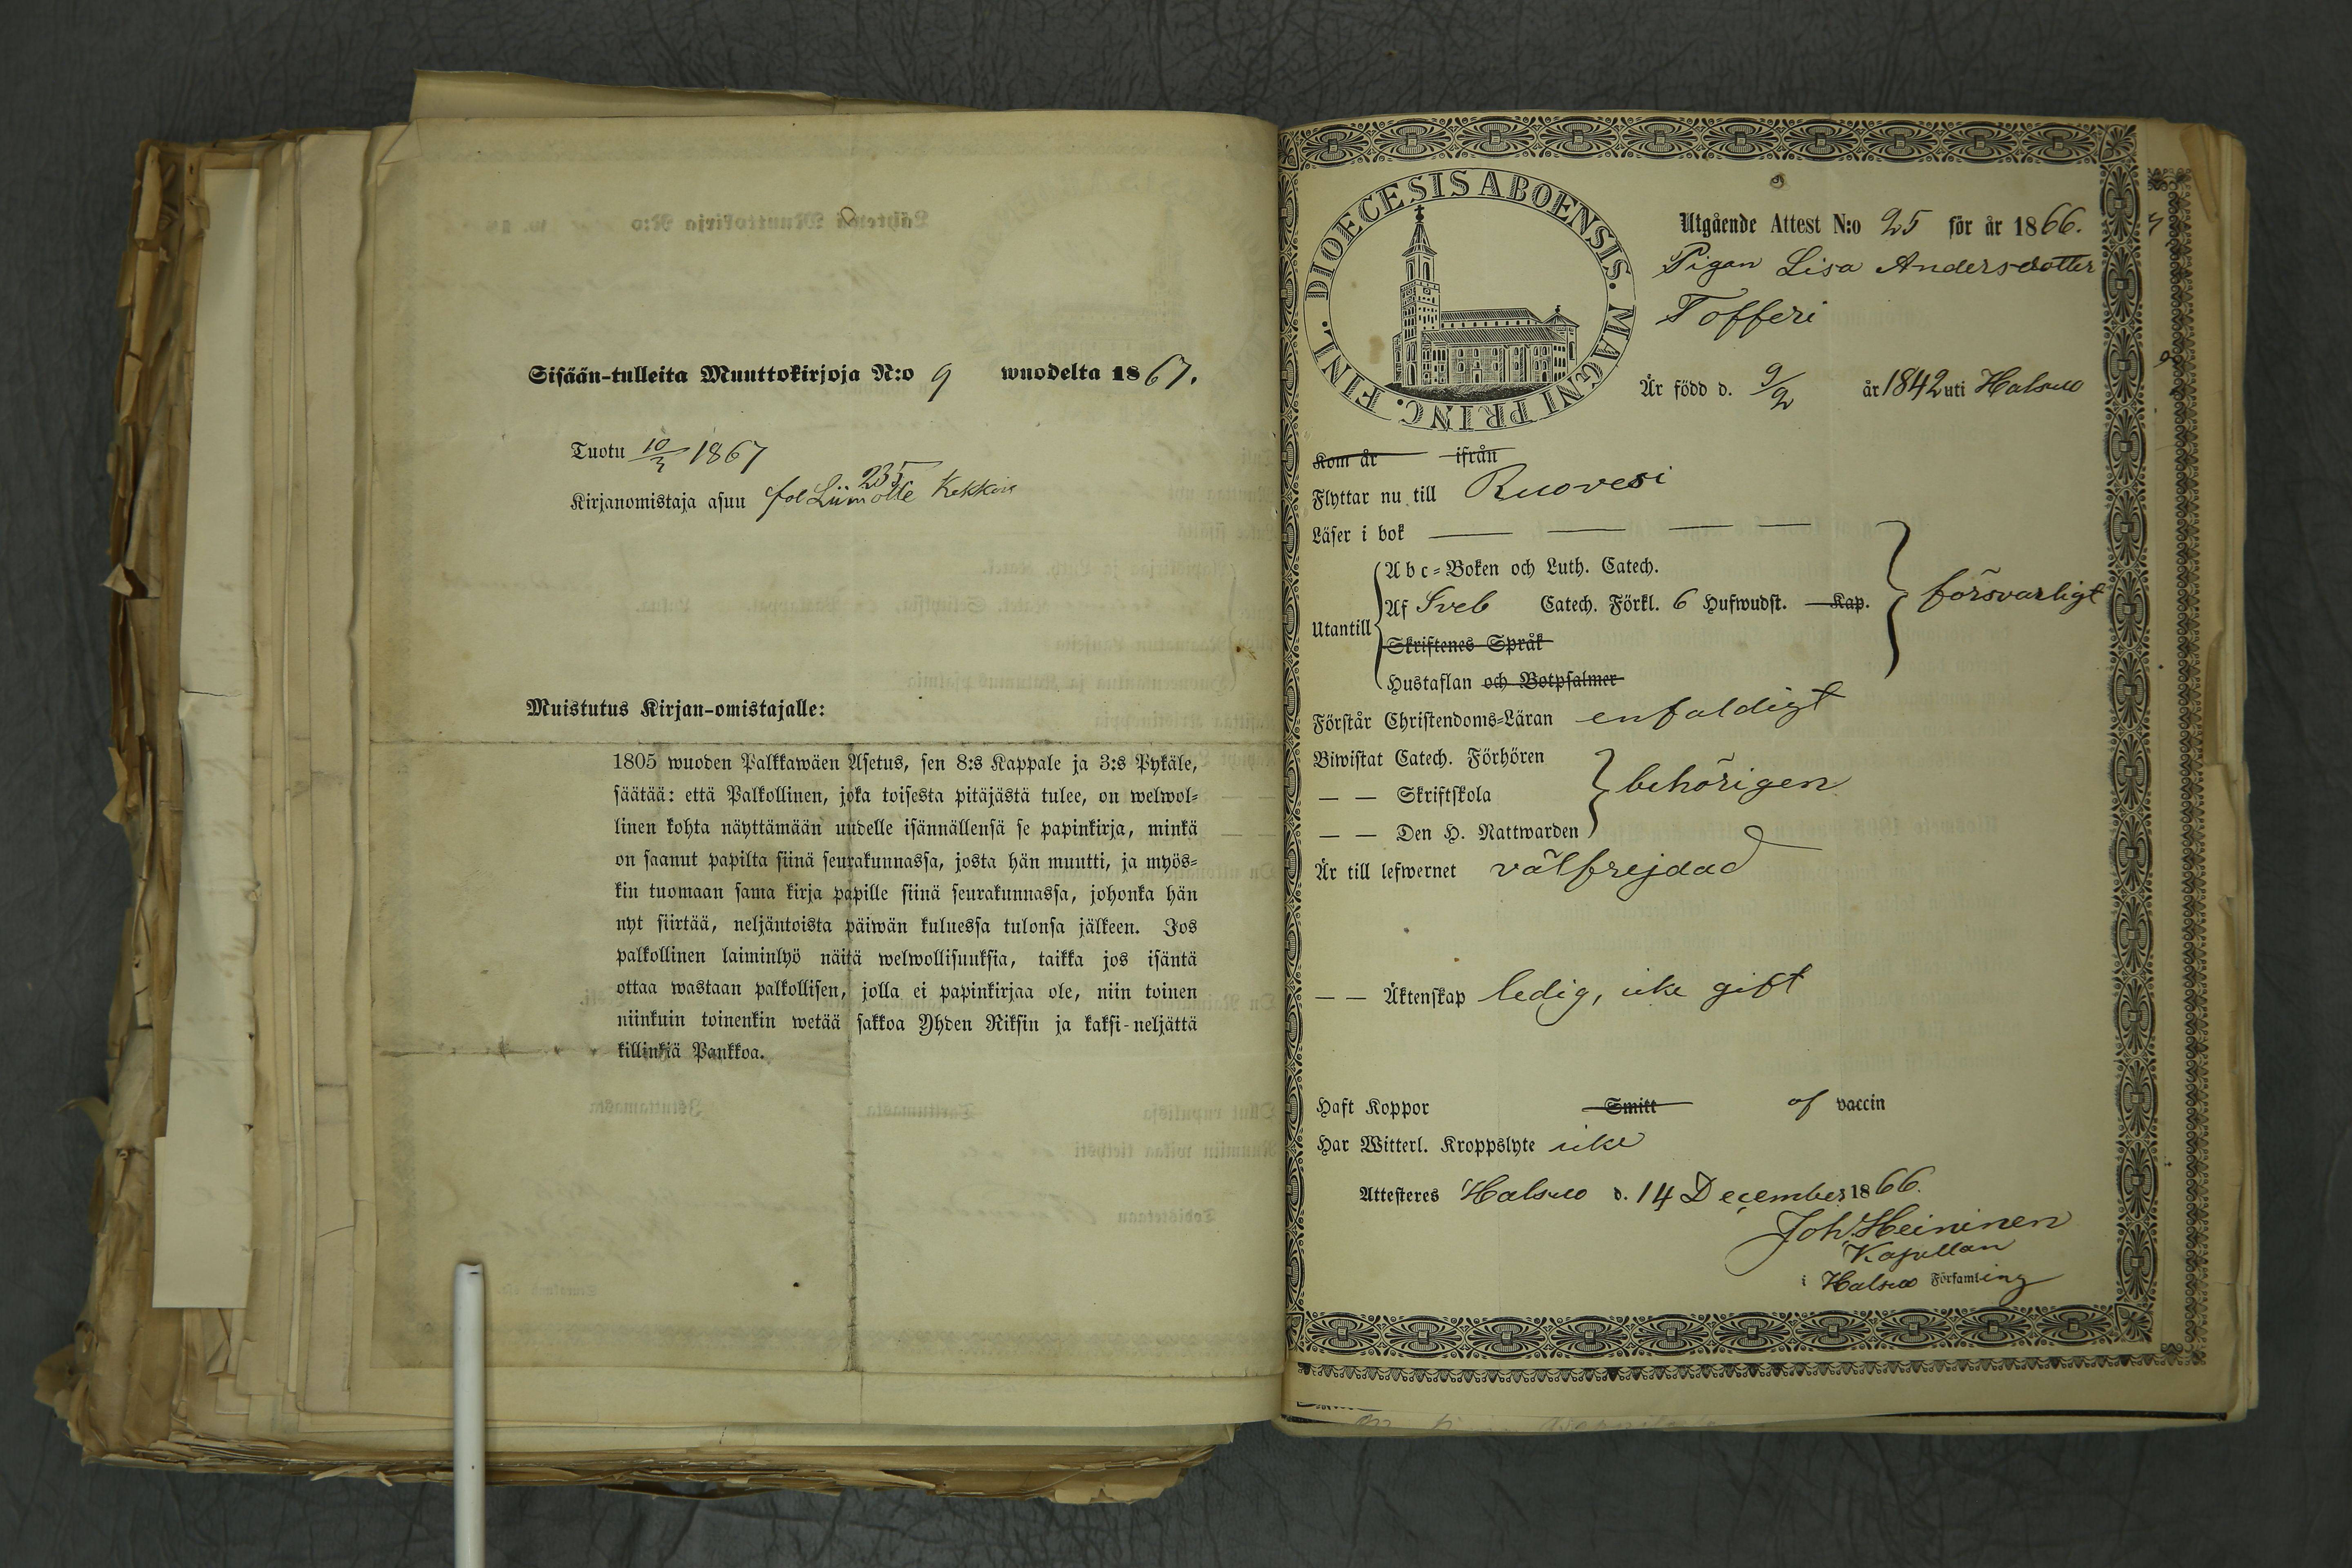 Sisään-tulleita Muuttokirjoja N:o 9 wuodelta 1867.
Tuotu 10/3 1867
235
Kirjanomistaja asuu fol Liimolle Kekkois
Muistutus Kirjan-omistajalle:
1805 wuoden Palkkawäen Asetus, sen 8:s Kappale ja 3:s Pykäle,
säätää: että Palkollinen, joka toisesta pitäjästä tulee, on welwol-
linen kohta näyttämään uudelle isännällensä se papinkirja, minkä
on saanut papilta siinä seurakunnassa, josta hän muutti, ja myös-
kin tuomaan sama kirja papille siinä seurakunnassa, johonka hän
nyt siirtää, neljäntoista päiwän kuluessa tulonsa jälkeen. Jos
palkollinen laiminlyö näitä welwollisuuksia, taikka jos isäntä
ottaa wastaan palkollisen, jolla ei papinkirjaa ole, niin toinen
niinkuin toinenkin wetää sakkoa Yhden Riksin ja kaksi-neljättä
killinkiä Pankkoa.
DIOECESIS ABOENSIS. MAGNI PRINC. FINL.
Utgående Attest N:o 25 för år 1866.
Pigan Lisa Andersdotter
Tofferi
Är född d. 9/2 år 1842 uti Halsuo
Kom år ifrån
Flyttar nu till Ruovesi
Läser i bok
Abc-Boken och Luth. Catech.
Af Sveb Catech. Förkl. 6 Hufwudst. Kap.
försvarligt
Utantill
Skriftenes Språk
Hustaflan och Botpsalmer
Förstår Christendoms-Läran enfaldigt
Biwistat Catech. Förhören
— — Skriftskola
behörigen
— — Den H. Nattwarden
Är till lefwernet välfrejdad
— — Äktenskap ledig, icke gift
Haft Koppor Smitt af vaccin
Har Witterl. Kroppslyte icke
Attesteres Halsuo d. 14 December 1866.
Joh. Heininen
Kapellan
i Halsuo Församling